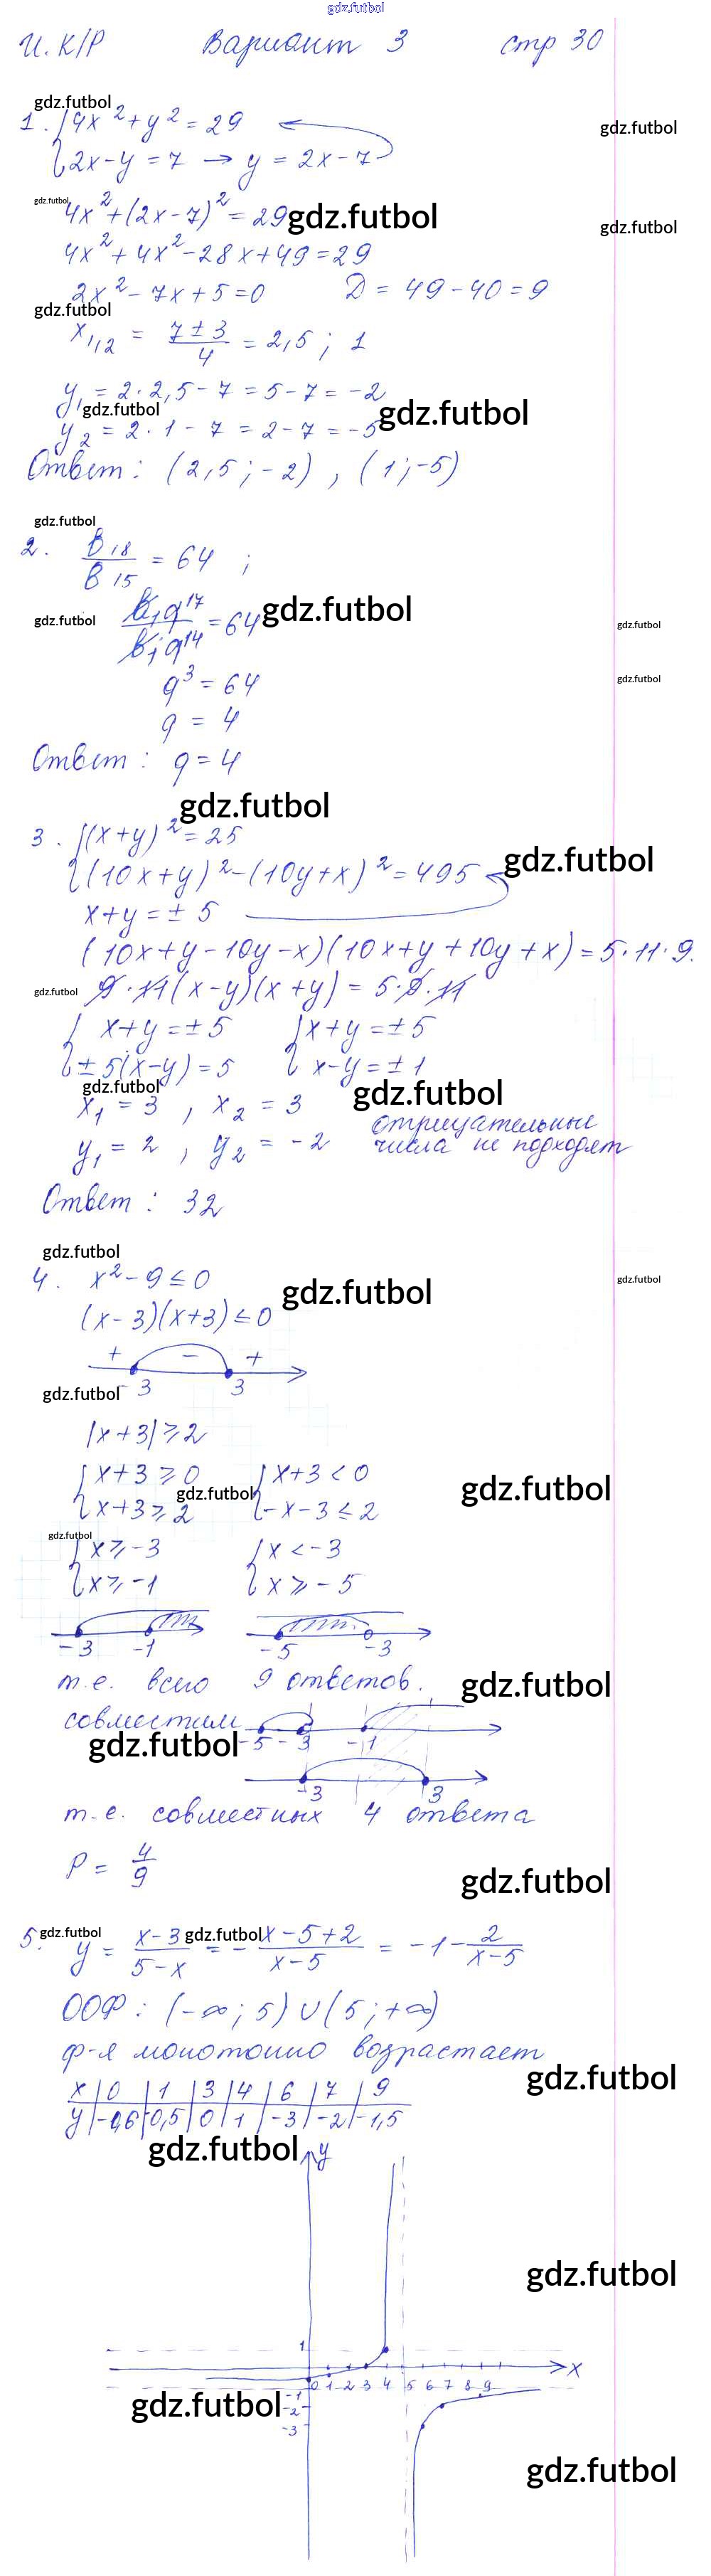 gdz.futbol
И. К/Р Вариант 3 стр 30
gdz.futbol
1. { 4x² + y² = 29
gdz.futbol
2x - y = 7 → y = 2x - 7
gdz.futbol
4x² + (2x - 7)² = 29
gdz.futbol
gdz.futbol
4x² + 4x² - 28x + 49 = 29
2x² - 7x + 5 = 0 D = 49 - 40 = 9
gdz.futbol
x₁,₂ = (7 ± 3)/4 = 2,5 ; 1
y₁ = 2·2,5 - 7 = 5 - 7 = -2
gdz.futbol gdz.futbol
y₂ = 2·1 - 7 = 2 - 7 = -5
Ответ: (2,5 ; -2) , (1 ; -5)
gdz.futbol
2. B₁₈/B₁₅ = 64 ;
gdz.futbol
b₁q¹⁷/b₁q¹⁴ = 64
gdz.futbol
gdz.futbol
q³ = 64
gdz.futbol
q = 4
Ответ: q = 4
gdz.futbol
3. { (x+y)² = 25
(10x+y)² - (10y+x)² = 495
gdz.futbol
x+y = ± 5
(10x+y-10y-x)(10x+y+10y+x) = 5·11·9.
gdz.futbol
9·11(x-y)(x+y) = 5·9·11
{ x+y = ±5 { x+y = ±5
±5(x-y) = 5 x-y = ±1
gdz.futbol gdz.futbol
x₁ = 3 , x₂ = 3 отрицательные
y₁ = 2 , y₂ = -2 числа не подходят
Ответ: 32
gdz.futbol
4. x² - 9 ≤ 0
gdz.futbol
gdz.futbol
(x-3)(x+3) ≤ 0
+ - +
-3 3
gdz.futbol
|x+3| ≥ 2
{ x+3 ≥ 0 { x+3 < 0
x+3 ≥ 2 -x-3 ≤ 2
gdz.futbol gdz.futbol
gdz.futbol
{ x ≥ -3 { x < -3
x ≥ -1 x ≥ -5
-3 -1 -5 -3
т.е. всего 9 ответов.
gdz.futbol
совместим
-5 -3 -1
gdz.futbol
-3 3
т.е. совместных 4 ответа
P = 4/9
gdz.futbol
gdz.futbol gdz.futbol
5. y = (x-3)/(5-x) = -(x-5+2)/(x-5) = -1 - 2/(x-5)
ООФ: (-∞; 5) ∪ (5; +∞)
ф-я монотонно возрастает
gdz.futbol
x | 0 | 1 | 3 | 4 | 6 | 7 | 9
y | -0,6 | -0,5 | 0 | 1 | -3 | -2 | -1,5
gdz.futbol
y
gdz.futbol
1
x
0 1 2 3 4 5 6 7 8 9
-1
gdz.futbol
-2
-3
gdz.futbol